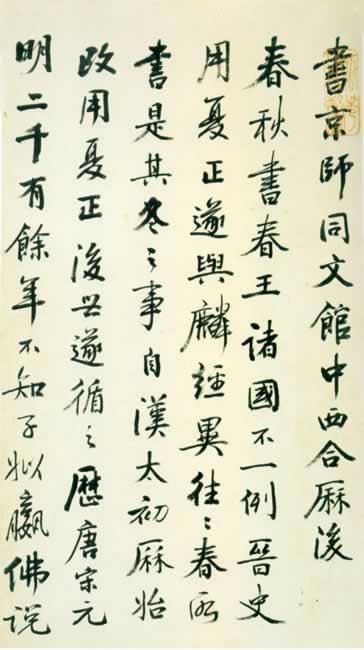 書京師同文館中西合厤後
春秋書春王諸國不一例晉史
用夏正遂與麟經異往〻春所
書是其冬之事自漢太初厤始
改用夏正後世遂循之歷唐宋元
明二千有餘年不知子姒嬴佛説